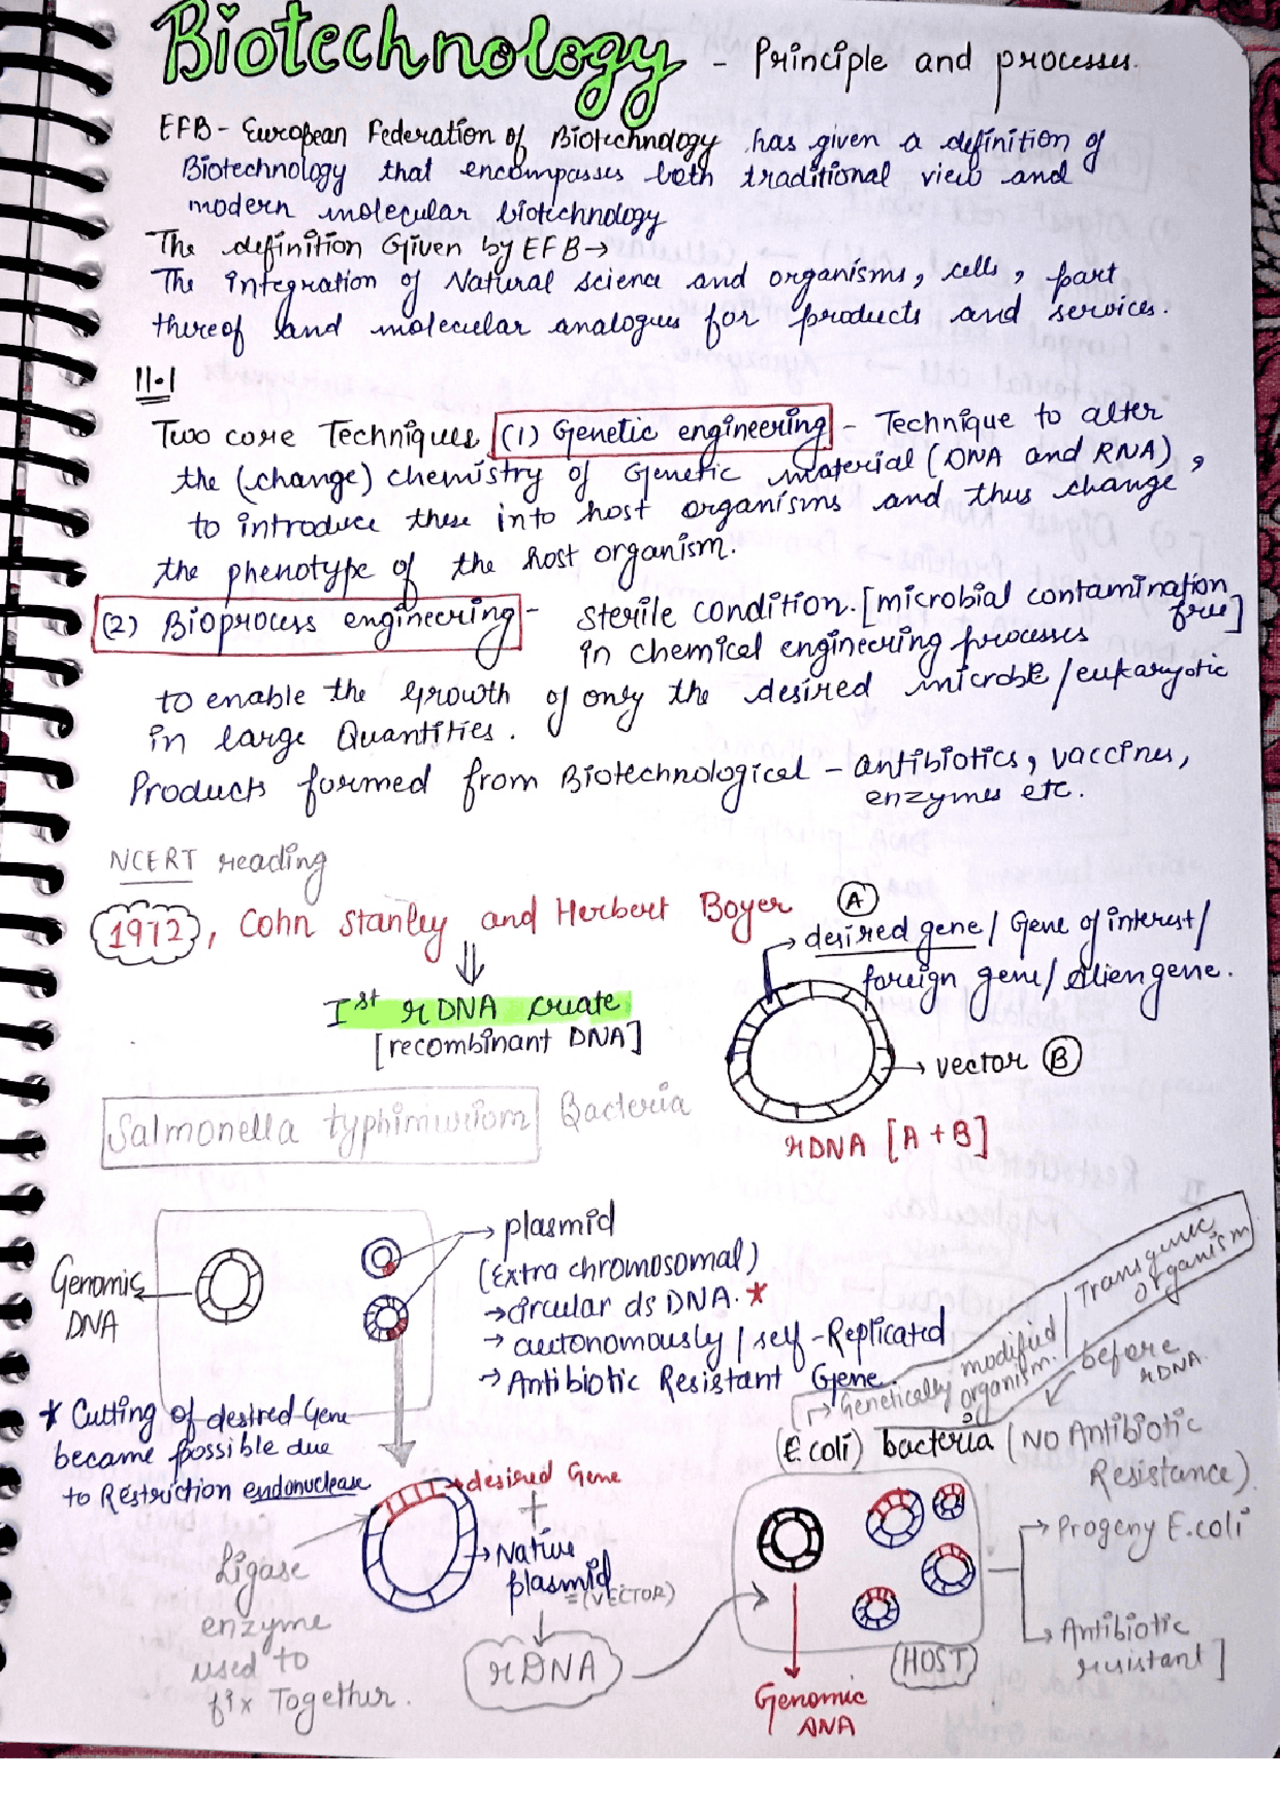 Biotechnology - Principle and processes.
EFB - European Federation of Biotechnology has given a definition of
Biotechnology that encompasses both traditional view and
modern molecular biotechnology
The definition Given by EFB →
The integration of Natural science and organisms, cells, part
thereof and molecular analogues for products and services.
11.1
Two core Techniques (1) Genetic engineering - Technique to alter
the (change) chemistry of Genetic material (DNA and RNA),
to introduce these into host organisms and thus change
the phenotype of the host organism.
(2) Bioprocess engineering - Sterile condition. [microbial contamination
free]
in chemical engineering processes
to enable the growth of only the desired microbe/eukaryotic
in large Quantities.
Products formed from Biotechnological - antibiotics, vaccines,
enzymes etc.
NCERT reading
1972, Cohn Stanley and Herbert Boyer
A
→ desired gene / Gene of interest/
foreign gene/ Alien gene.
⇓
Ist rDNA create
[recombinant DNA]
→ vector B
Salmonella typhimurium Bacteria
rDNA [A + B]
→ plasmid
(Extra chromosomal)
→ circular ds DNA. *
→ autonomously / self-Replicated
→ Antibiotic Resistant Gene.
Genomic
DNA
Transgenic
organism
→ Genetically modified
organism.
before
rDNA.
* Cutting of desired Gene
became possible due
to Restriction endonuclease
(E.coli) bacteria (NO Antibiotic
Resistance)
→ desired Gene
+
→ Native
plasmid
=(VECTOR)
Ligase
enzyme
used to
fix Together.
rDNA
→ Progeny E.coli
→ Antibiotic
resistant ]
(HOST)
Genomic
ANA